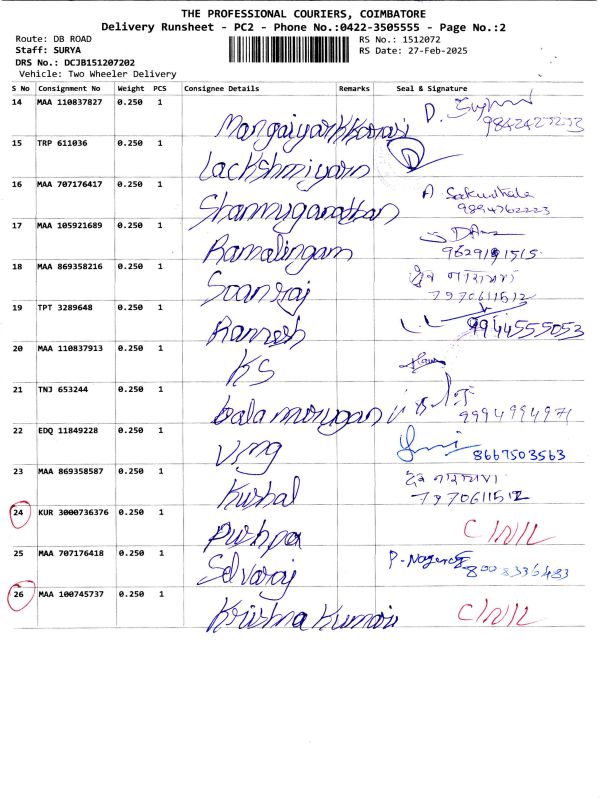 THE PROFESSIONAL COURIERS, COIMBATORE
Delivery Runsheet - PC2 - Phone No.:0422-3505555 - Page No.:2
Route: DB ROAD RS No.: 1512072
Staff: SURYA RS Date: 27-Feb-2025
DRS No.: DCJB151207202
Vehicle: Two Wheeler Delivery
S No Consignment No Weight PCS Consignee Details Remarks Seal & Signature
14 MAA 110837827 0.250 1 Mangaiyarkkarasi D.
15 TRP 611036 0.250 1 Lackshmiyam
16 MAA 707176417 0.250 1 Shanmuganathan A
9894762223
17 MAA 105921689 0.250 1 Ramalingam
9629191515
18 MAA 859358216 0.250 1 Soanraj
7970611512
19 TPT 3289648 0.250 1 Ramesh 9944555053
20 MAA 110837913 0.250 1 KS
21 TNJ 653244 0.250 1 balamurugan 9994994971
22 EDQ 11849228 0.250 1 VMG 8667503563
23 MAA 869358587 0.250 1 Kushal
7970611512
24 KUR 3000736376 0.250 1 Pushpa C/N/L
25 MAA 707176418 0.250 1 Selvaraj P-Nagendra 8008336483
26 MAA 100745737 0.250 1 Krishna Kumar C/N/L